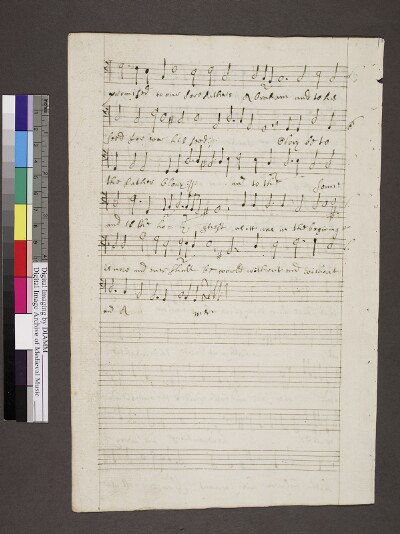 promised to our forefathers Abraham and to his
seed for ever his seed Glory be to
the father Glory and to the Sonne
and to the ho ghost as it was in the beginning
is now and ever shall be world without end without
end A men
Digital Imaging by DIAMM
Digital Image Archive of Medieval Music